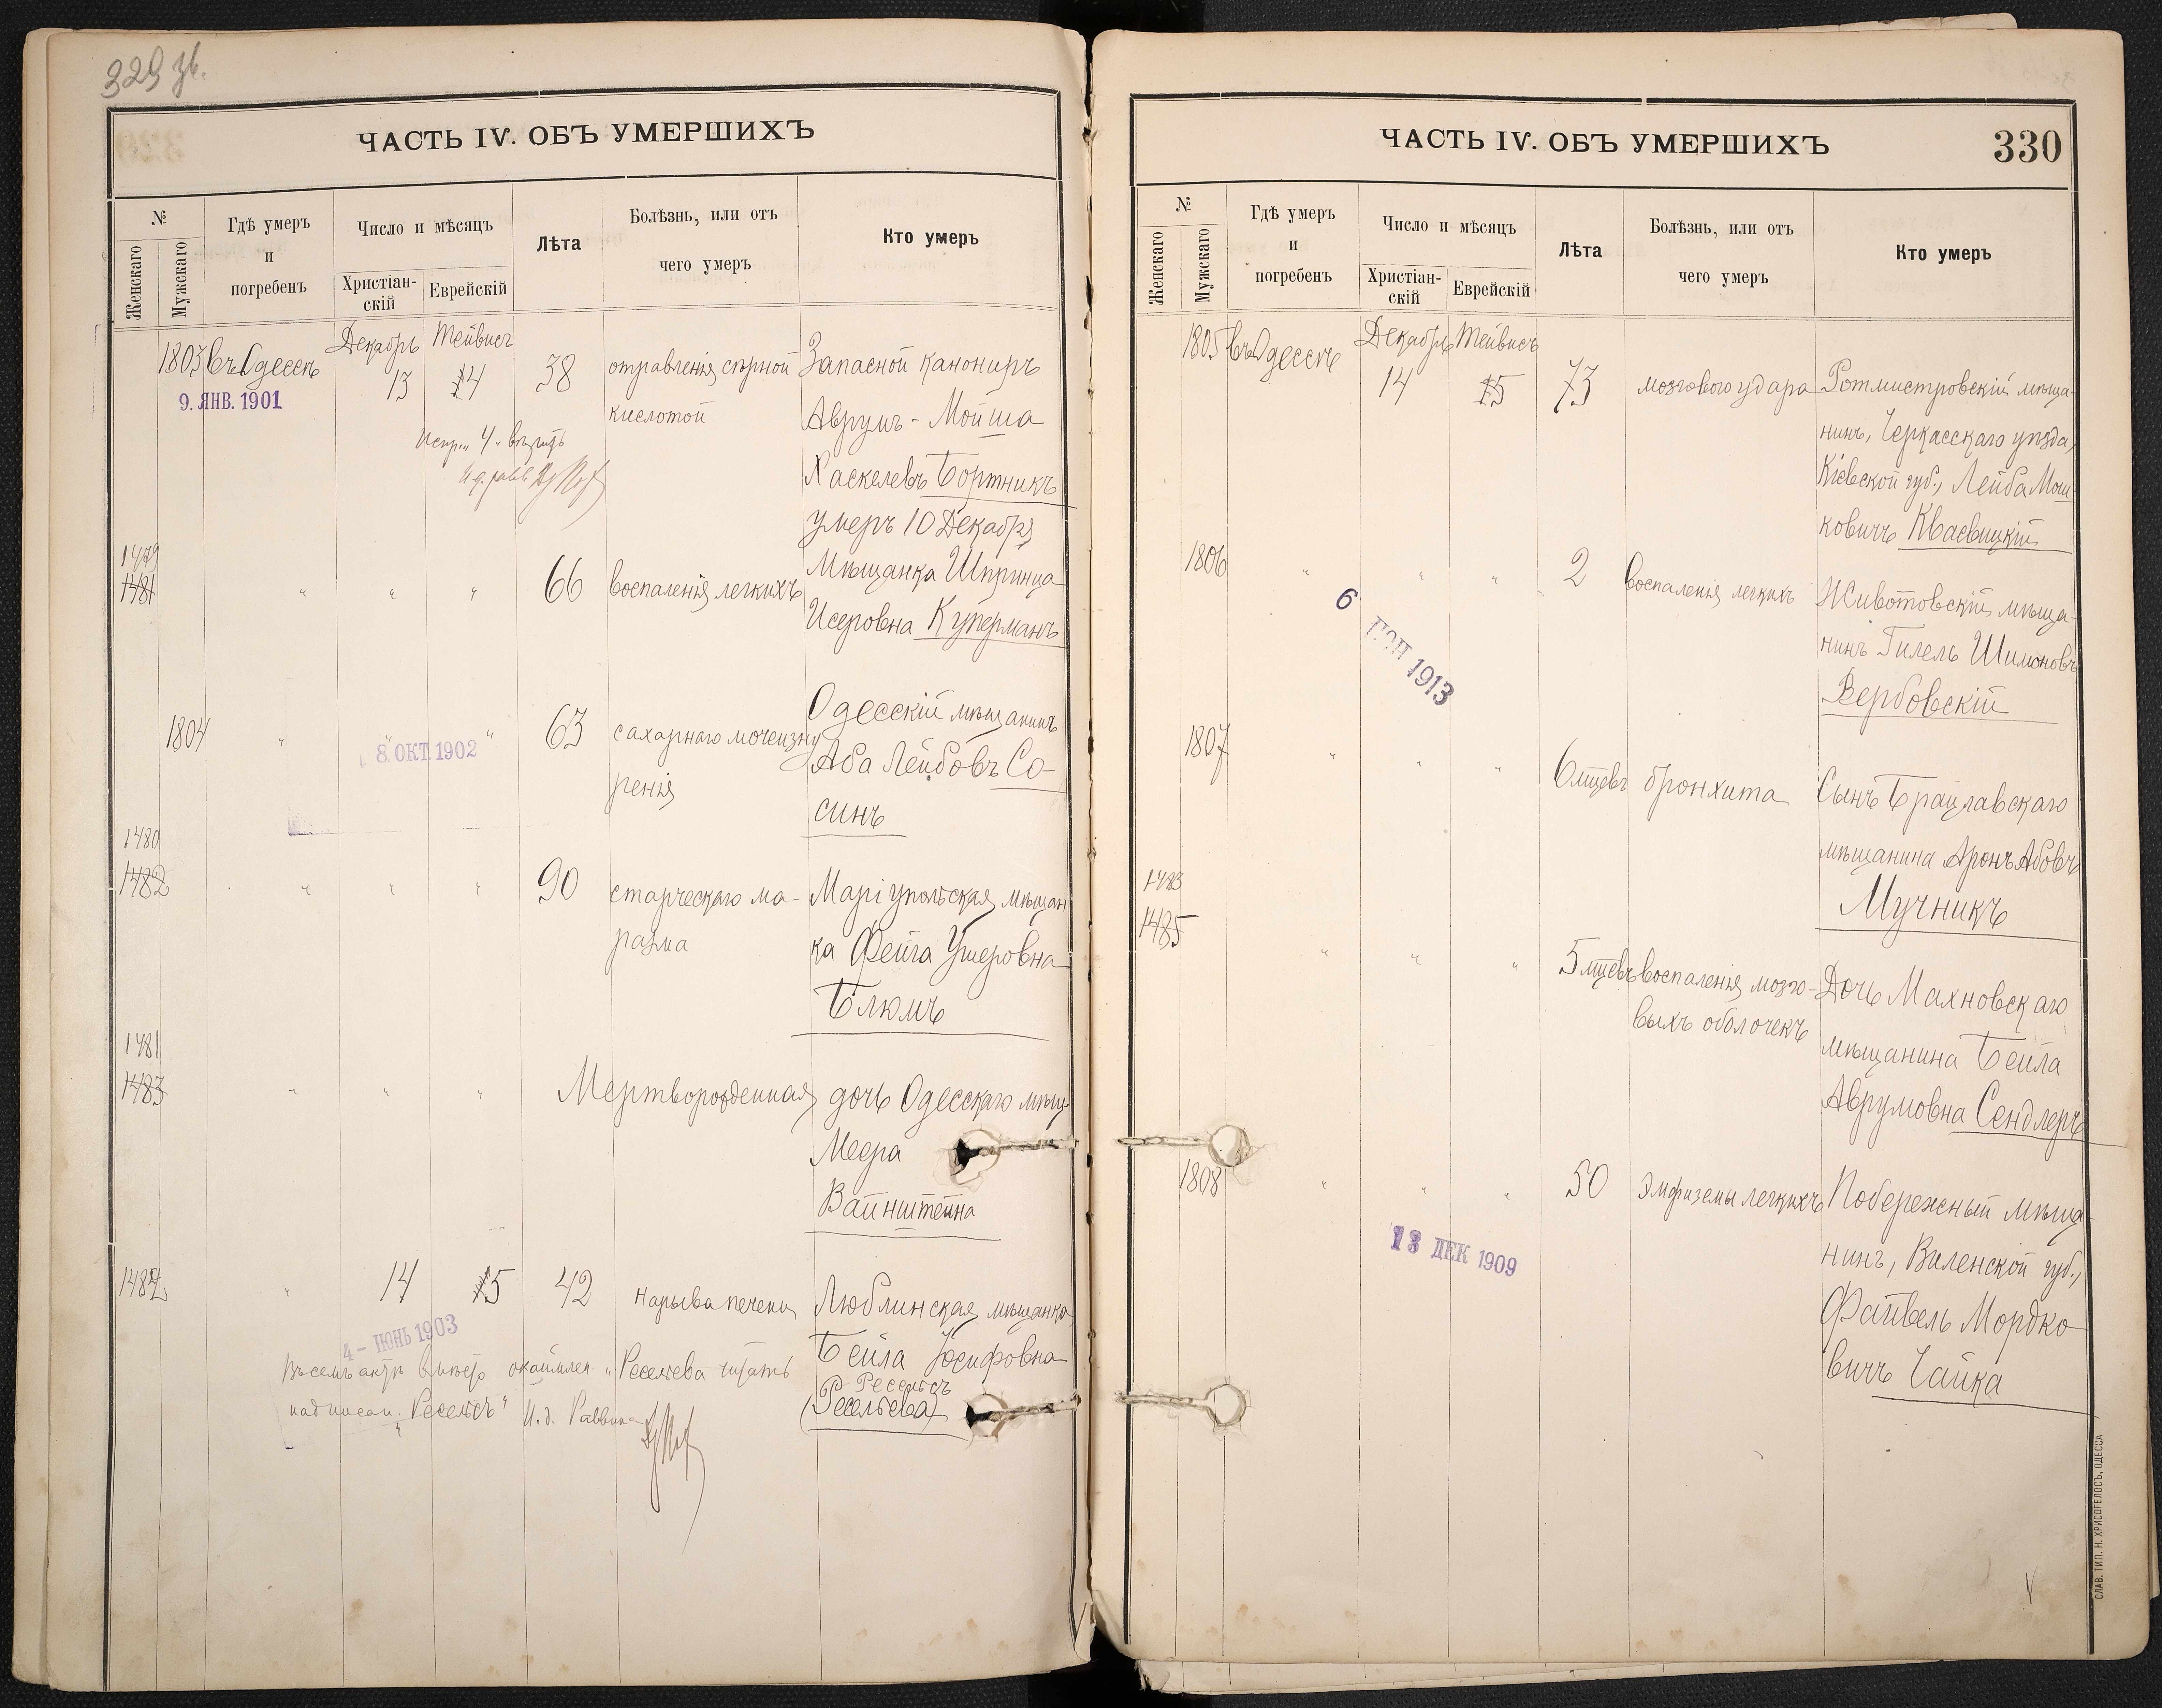 329 зв.
ЧАСТЬ IV. ОБЪ УМЕРШИХЪ
№
Женскаго
Мужскаго
Гдѣ умеръ
и
погребенъ
Число и мѣсяцъ
Христіан-
скій
Еврейскій
Лѣта
Болѣзнь, или отъ
чего умеръ
Кто умеръ
1803 въ Одессѣ Декабрь Тейвисъ
13 14 38 отравленія сѣрной Запасной канониръ
9. ЯНВ. 1901
кислотой Аврумъ-Мойша
Хаскелевъ Бортникъ
умеръ 10 Декабря
1479
1481 " " " 66 воспаленія легкихъ Мѣщанка Шпринца
Исеровна Куперманъ
1804 " " " 63 сахарнаго мочеизну Одесскій мѣщанинъ
8. ОКТ. 1902
ренія Аба Лейбовъ Со-
синъ
1480
1482 " " " 90 старческаго ма- Маріупольская мѣщан
разма ка Фейга Ушеровна
Блюмъ
1481
1483 " " " Мертворожденная дочь Одесскаго мѣщ.
Меера
Вайнштейна
1482 " 14 15 42 нарыва печени Люблинская мѣщанка
4 - ІЮНЬ 1903
Бейла Іосифовна
Ресельсъ
(Ресельева)
Въ семъ актѣ вмѣсто "Ресельева читать
надписан. "Ресельсъ" И.д. Раввина
ЧАСТЬ IV. ОБЪ УМЕРШИХЪ
330
№
Женскаго
Мужскаго
Гдѣ умеръ
и
погребенъ
Число и мѣсяцъ
Христіан-
скій
Еврейскій
Лѣта
Болѣзнь, или отъ
чего умеръ
Кто умеръ
1805 въ Одессѣ Декабрь Тейвисъ
14 15 73 мозгового удара Ротмистровскій мѣща-
нинъ, Черкасскаго уѣзда,
Кіевской губ., Лейба Мош-
ковичъ Кваевицкій
1806 " " " 2 воспаленія легкихъ Животовскій мѣща-
6 ІЮН 1913
нинъ Гилель Шимоновъ
Вербовскій
1807 " " " 6 мцевъ бронхита Сынъ Брацлавскаго
мѣщанина Аронъ Абовъ
Мучникъ
1483
1485 " " " 5 мцевъ воспаленія мозго- Дочь Махновскаго
выхъ оболочекъ мѣщанина Бейла
Аврумовна Сендлеръ
1808 " " " 50 эмфиземы легкихъ Побережный мѣща-
13 ДЕК 1909
нинъ, Виленской губ.,
Файвель Мордко
вичъ Чайка
СЛАВ. ТИП. Н. ХРИСОГЕЛОСЪ, ОДЕССА